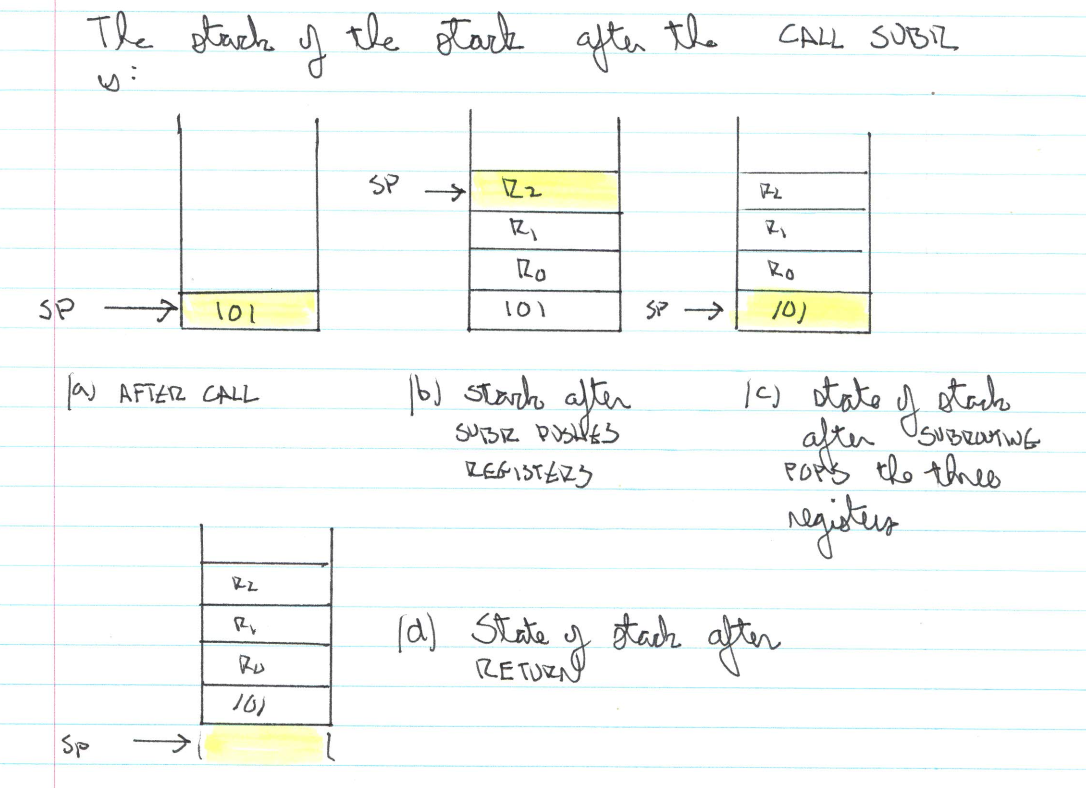 The stack of the stack after the CALL SUBR
is:
SP → 101
SP → R2
R1
R0
101
R2
R1
R0
SP → 101
(a) AFTER CALL
(b) stack after
SUBR PUSHES
REGISTERS
(c) state of stack
after SUBROUTINE
POPS the three
registers
R2
R1
R0
101
SP →
(d) State of stack after
RETURN